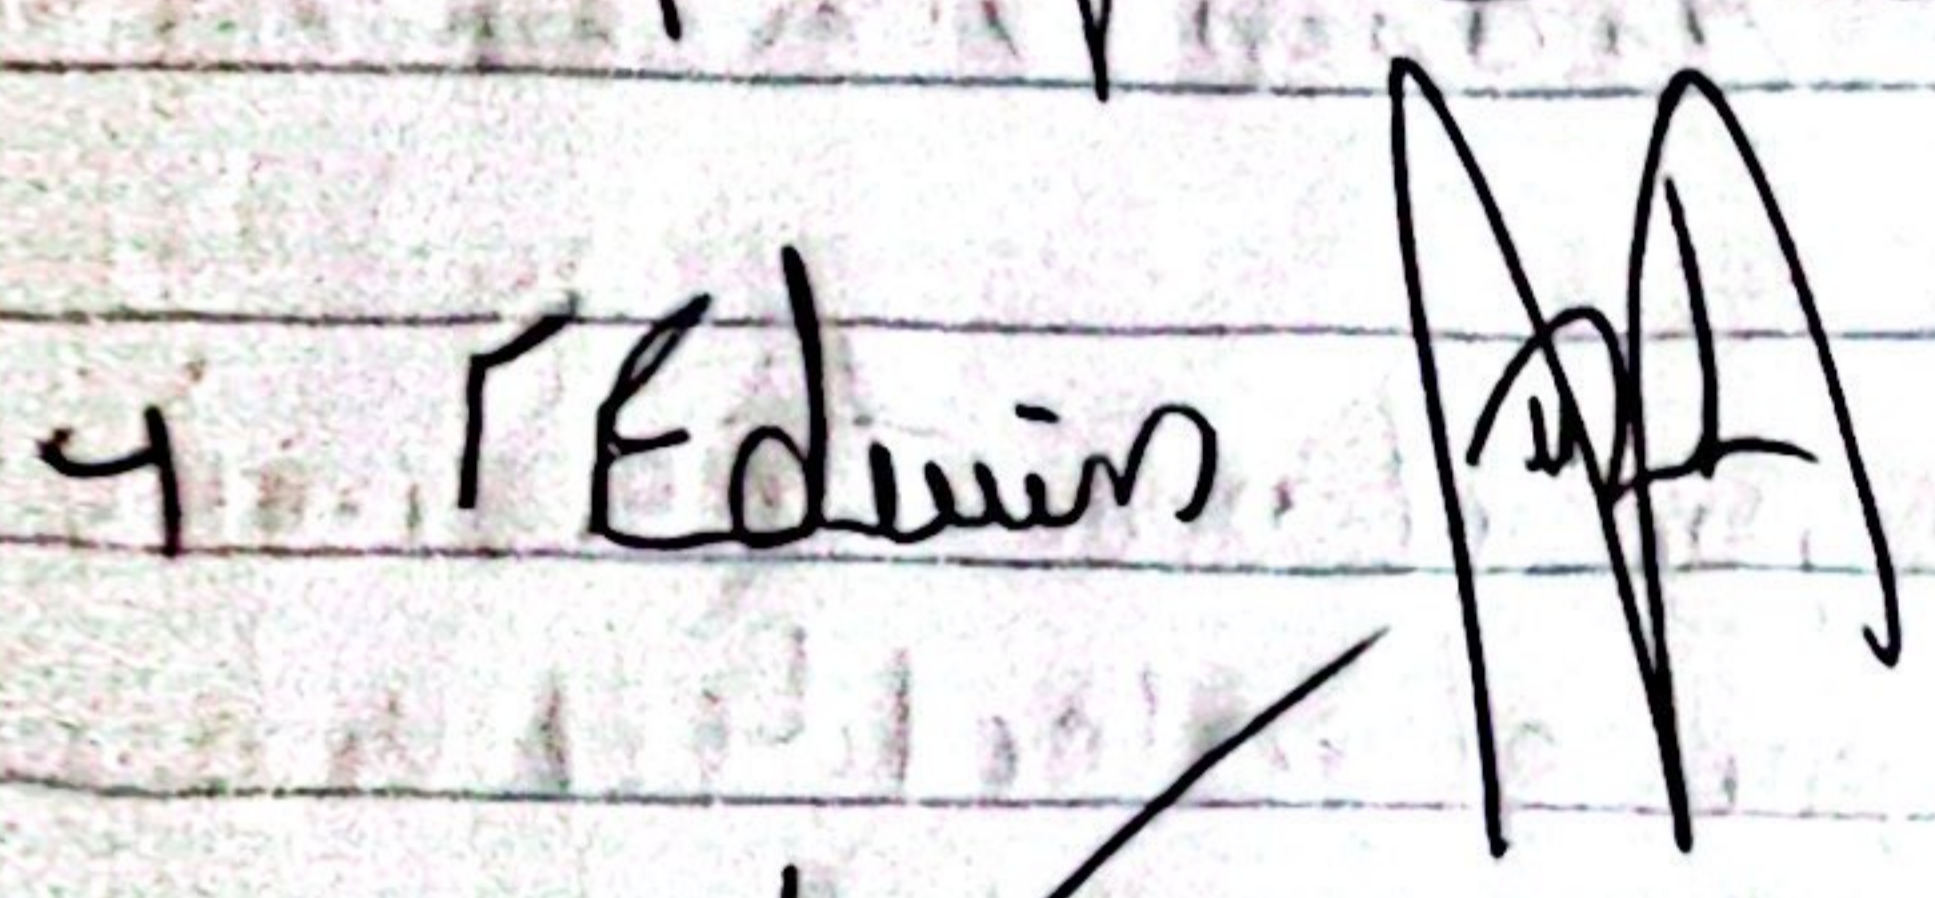 4 r Edwin